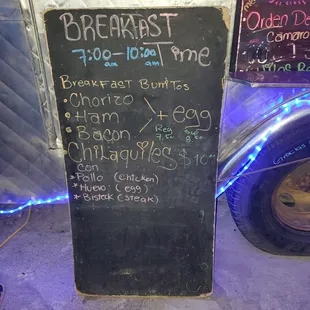 BREAKFAST
7:00 - 10:00 Time
am am
BreakFast Burritos
• Chorizo
• Ham + egg
• Bacon
Reg
7.50
ChiLaquiLes $10
con
* Pollo (chicken)
* Huevo (egg)
* Bistek (steak)
Orden De
Camaro